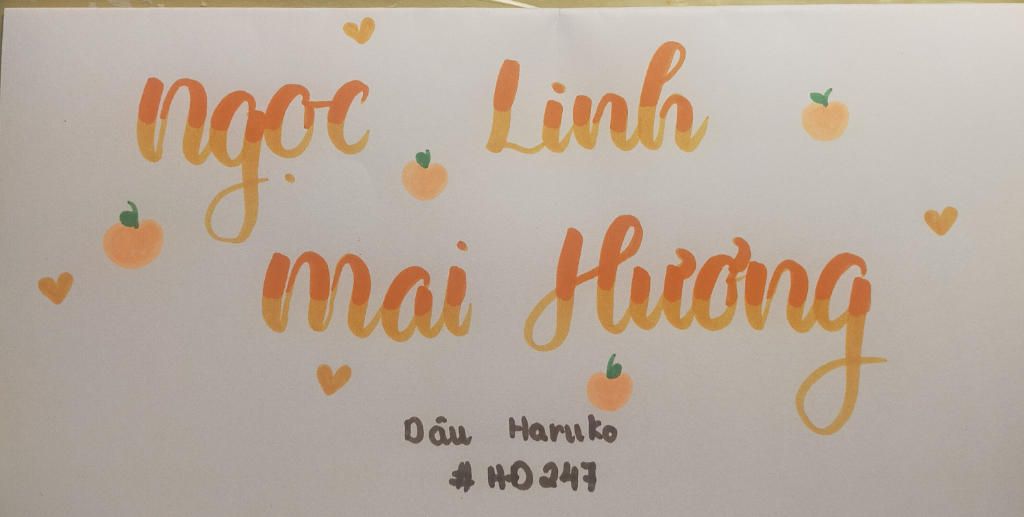 Ngọc Linh
Mai Hương
Dâu Haruko
#HD247